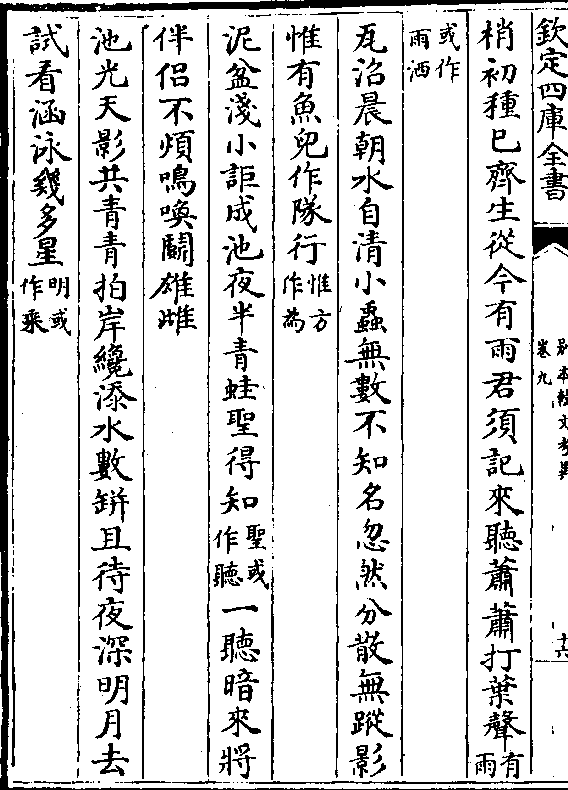 欽定四庫全書
別本韓文考異
卷九
十六
梢初種已齊生從今有雨君須記來聽蕭蕭打葉聲有雨
或作雨洒
瓦沼晨朝水自清小蟲無數不知名忽然分散無蹤影
惟有魚兒作隊行惟方作為
泥盆淺小詎成池夜半青蛙聖得知聖或作聽一聽暗來將
伴侣不煩鳴喚鬭雄雌
池光天影共青青拍岸纔添水數缾且待夜深明月去
試看涵泳幾多星明或作乘